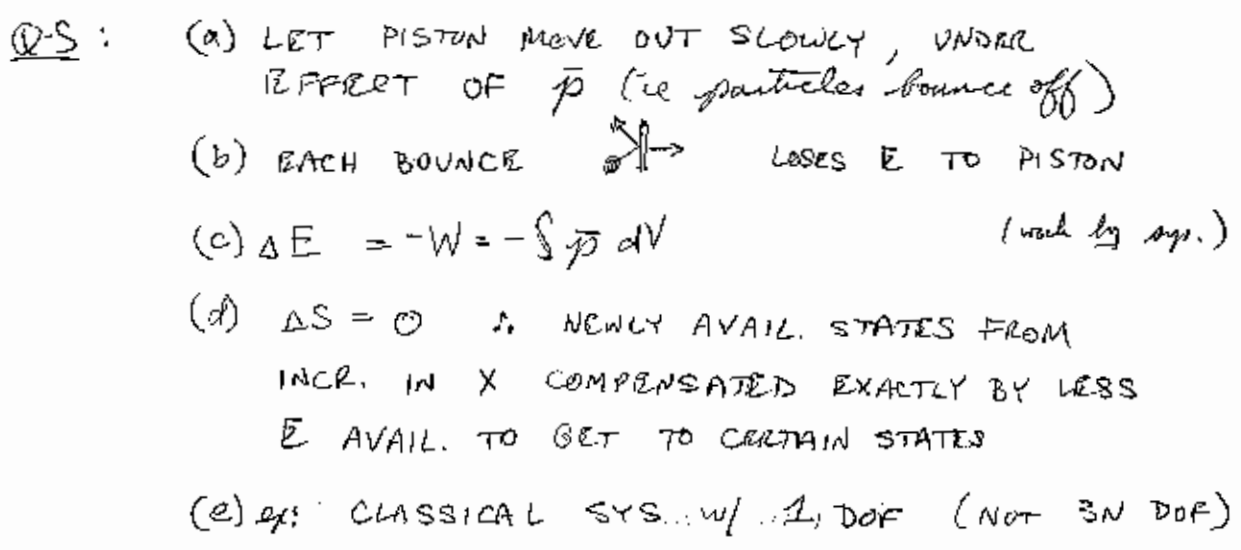 Q-S : (a) LET PISTON MOVE OUT SLOWLY, UNDER
EFFECT OF p̄ (ie particles bounce off)
(b) EACH BOUNCE LOSES E TO PISTON
(c) ΔE = -W = -∫ p̄ dV (work by sys.)
(d) ΔS = 0 ∴ NEWLY AVAIL. STATES FROM
INCR. IN X COMPENSATED EXACTLY BY LESS
E AVAIL. TO GET TO CERTAIN STATES
(e) ex: CLASSICAL SYS. w/ 1 DOF (NOT 3N DOF)